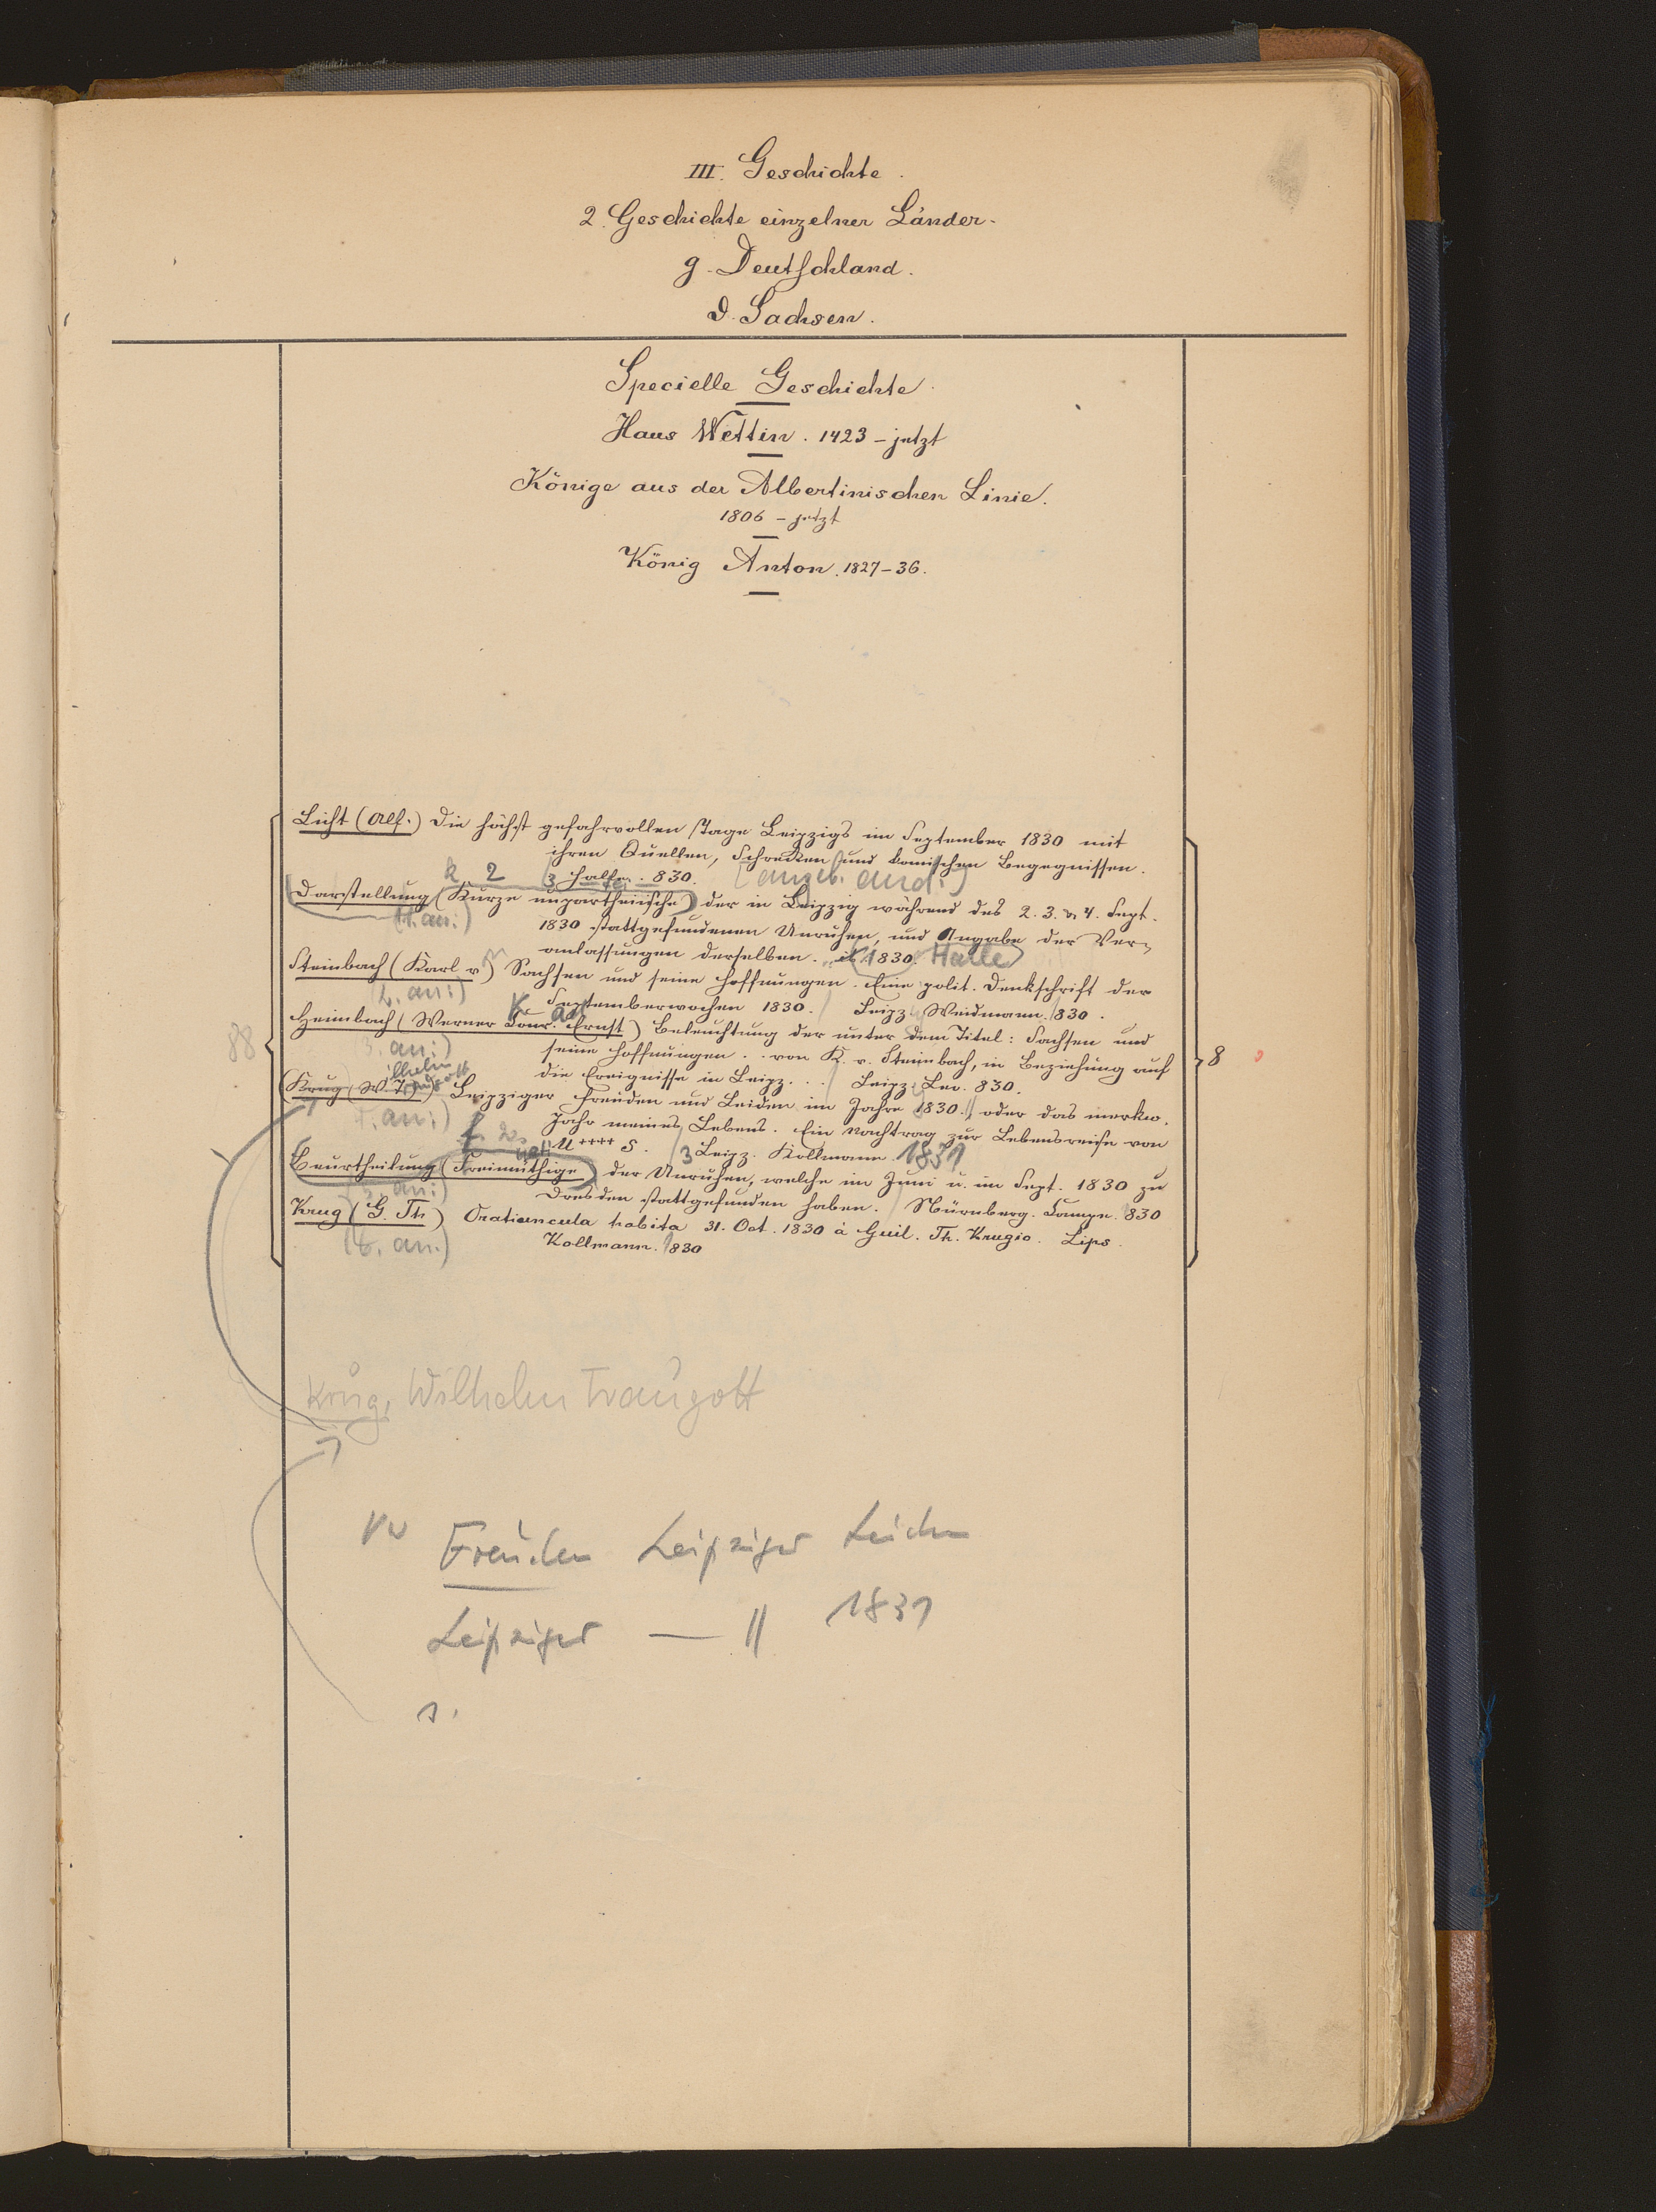 III. Geschichte.
2. Geschichte einzelner Länder.
g. Deutschland.
d. Sachsen.
Specielle Geschichte.
Haus Wettin. 1423 – jetzt
Könige aus der Albertinischen Linie.
1806 – jetzt
König Anton. 1827–36.
Licht (Alf.) Die höchst gefahrvollen Tage Leipzigs im September 1830 mit
ihren Quellen, Schrecken und komischen Begegnissen.
k. 2 Halle. 830. (angeb. and:)
Darstellung (Kurze unpartheiische) der in Leipzig während des 2. 3. & 4. Sept.
(1. an:) 1830 stattgefundenen Unruhen, und Angabe der Ver-
anlassungen derselben. ib. 1830. Halle
Steinbach (Karl v.) Sachsen und seine Hoffnungen. Eine polit. Denkschrift der
(2. an:) Septemberwochen 1830. Leipz. Weidmann. 1830.
Heimbach (Werner Conr. Ernst) Beleuchtung der unter dem Titel: Sachsen und
88
3. an:) seine Hoffnungen . . von K. v. Steinbach, in Beziehung auf
8
0
die Ereignisse in Leipz. . . Leipz. Lev. 830.
ilhelm raugott
Krug (W T) Leipziger Freuden und Leiden im Jahre 1830. oder das merkw.
an:) Jahr meines Lebens. Ein Nachtrag zur Lebensreise von
f. 2. U++++ S. Leipz. Kollmann. 1831
Beurtheilung (Freimüthige) der Unruhen, welche im Juni u. im Sept. 1830 zu
an:) Dresden stattgefunden haben. Nürnberg. Campe. 830
Krug (G. Th) Oratiuncula habita 31. Oct. 1830 à Guil. Th. Krugio. Lips.
(6. an.) Kollmann. 1830
Krug, Wilhelm Traugott
Vw Freuden Leipziger Leiden
Leipziger — // 1831
s.